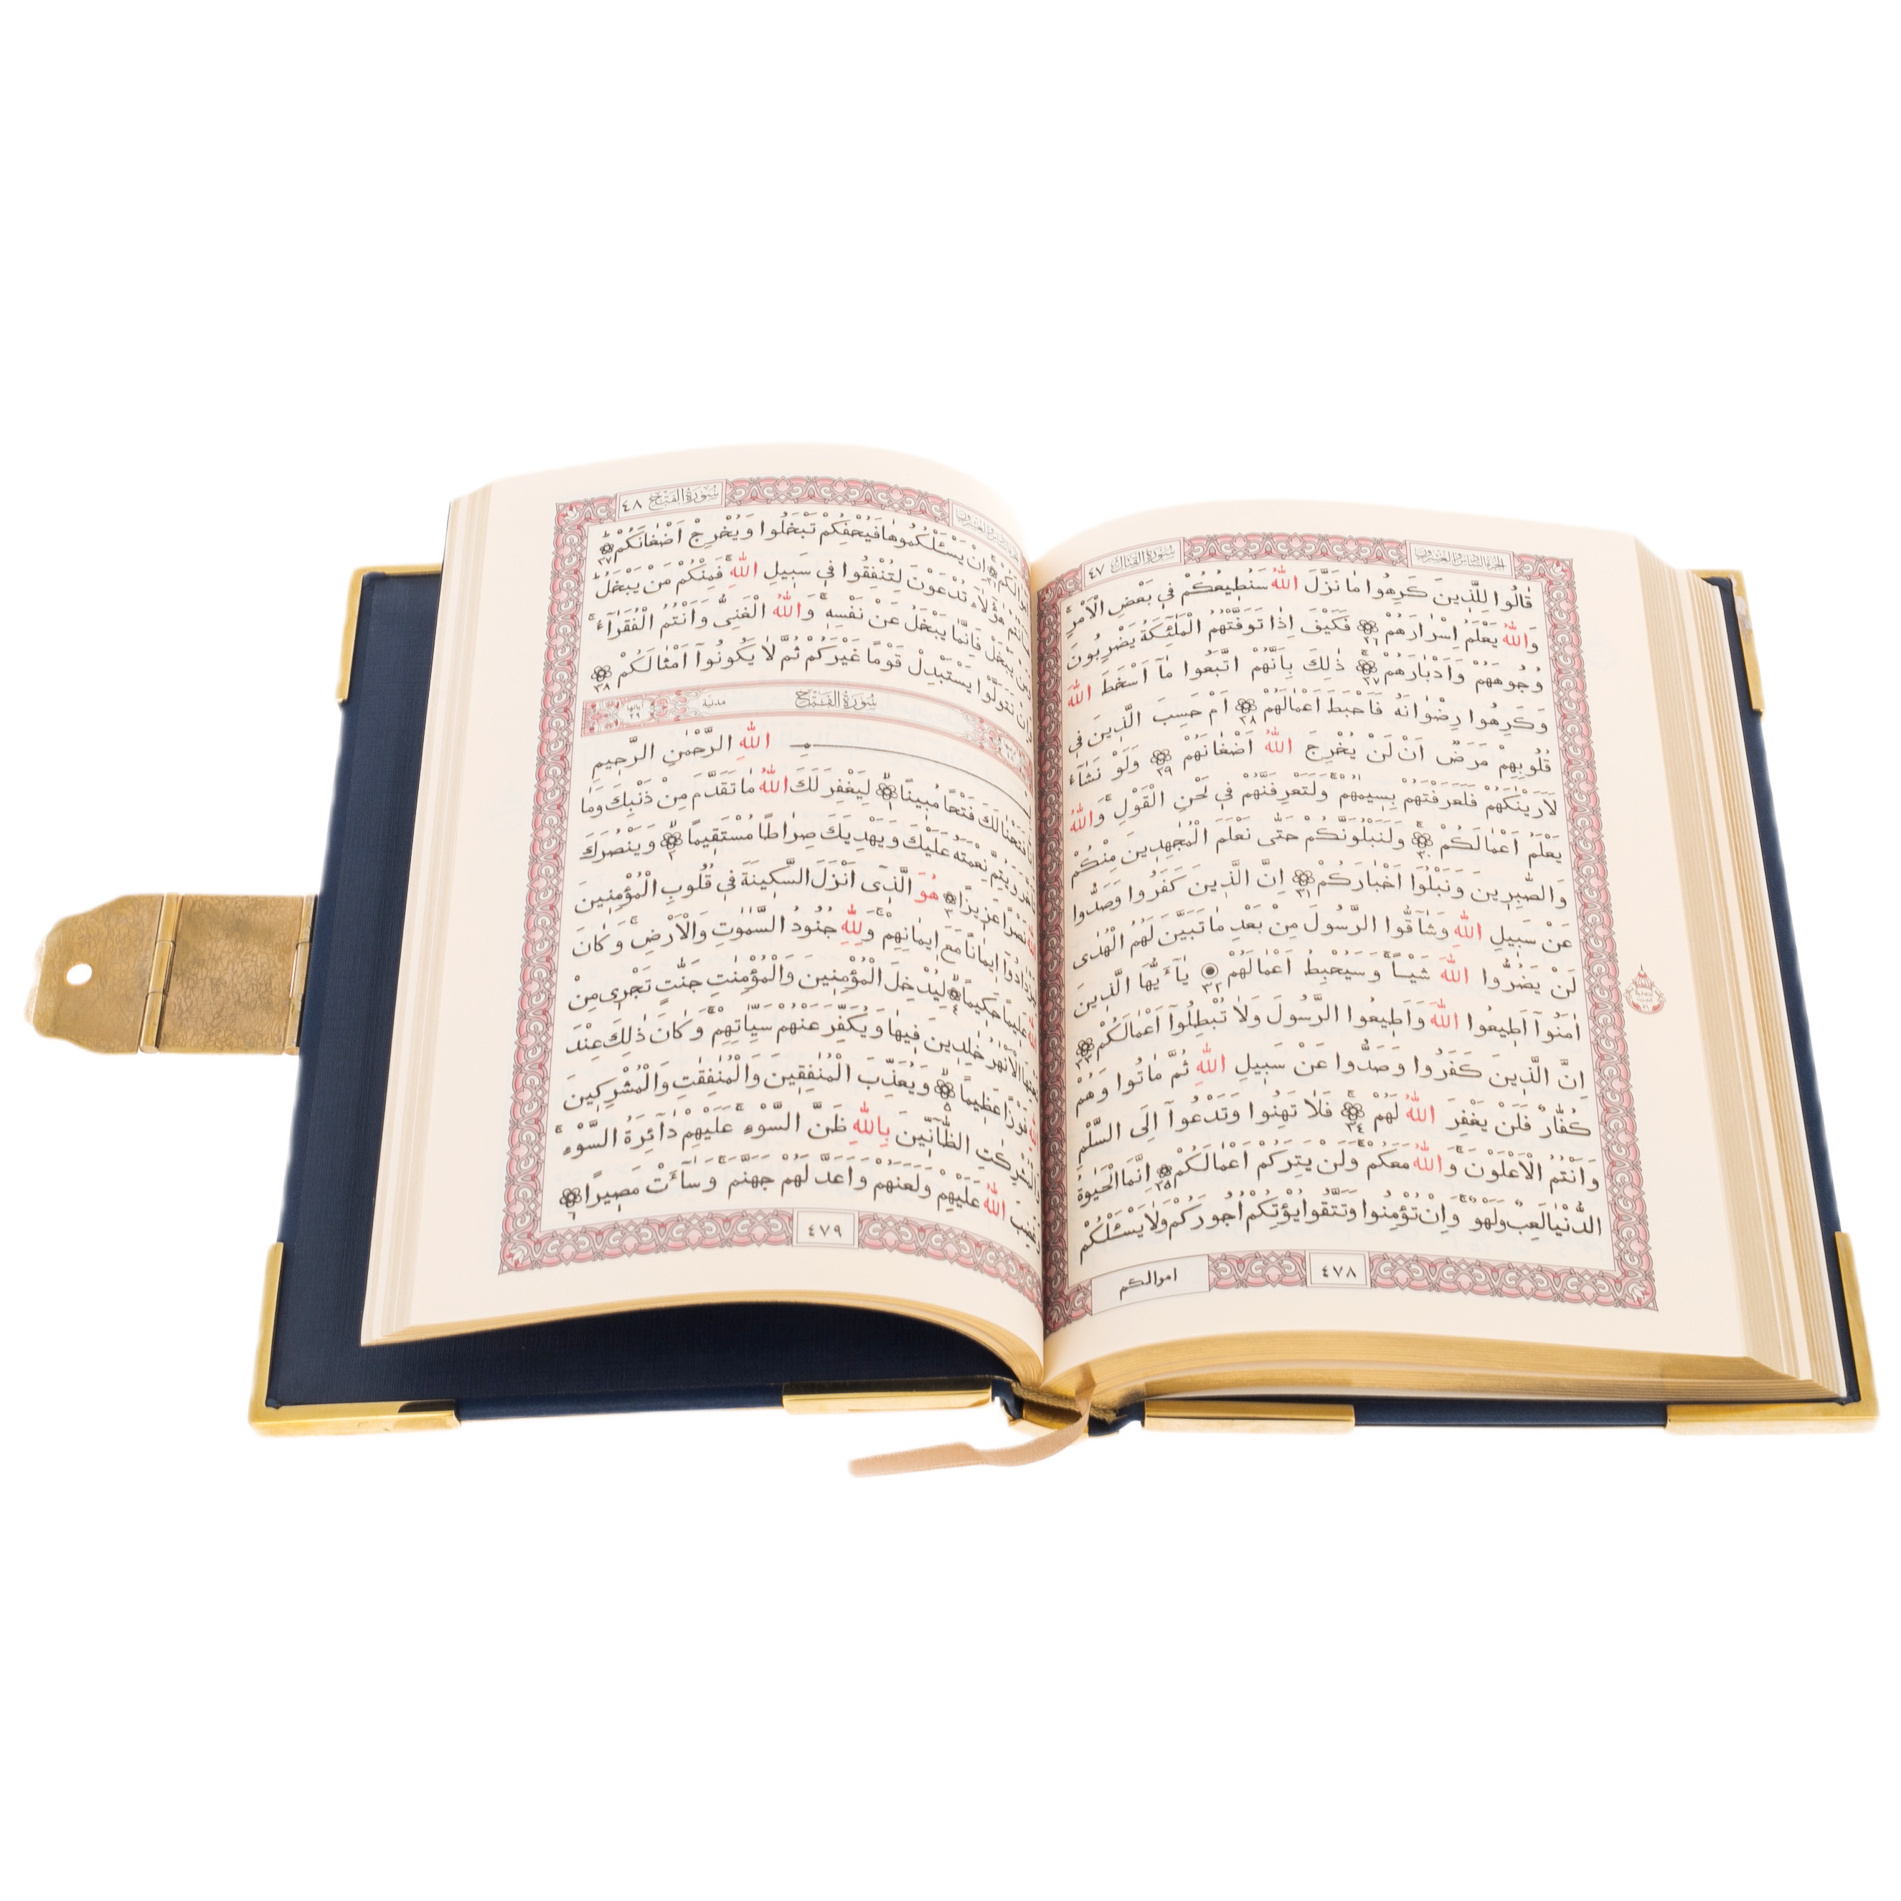 الجزء السادس والعشرون
سورة القتال ٤٧
قَالُوا لِلَّذِينَ كَرِهُوا مَا نَزَّلَ اللّٰهُ سَنُطِيعُكُمْ فِي بَعْضِ الْاَمْرِ
وَاللّٰهُ يَعْلَمُ اِسْرَارَهُمْ ٢٦ فَكَيْفَ اِذَا تَوَفَّتْهُمُ الْمَلٰٓئِكَةُ يَضْرِبُونَ
وُجُوهَهُمْ وَاَدْبَارَهُمْ ٢٧ ذٰلِكَ بِاَنَّهُمُ اتَّبَعُوا مَٓا اَسْخَطَ اللّٰهَ
وَكَرِهُوا رِضْوَانَهُ فَاَحْبَطَ اَعْمَالَهُمْ ٢٨ اَمْ حَسِبَ الَّذِينَ فِي
قُلُوبِهِمْ مَرَضٌ اَنْ لَنْ يُخْرِجَ اللّٰهُ اَضْغَانَهُمْ ٢٩ وَلَوْ نَشَٓاءُ
لَاَرَيْنَاكَهُمْ فَلَعَرَفْتَهُمْ بِسِيمٰيهُمْ وَلَتَعْرِفَنَّهُمْ فِي لَحْنِ الْقَوْلِ وَاللّٰهُ
يَعْلَمُ اَعْمَالَكُمْ ٣٠ وَلَنَبْلُوَنَّكُمْ حَتّٰى نَعْلَمَ الْمُجَاهِدِينَ مِنْكُمْ
وَالصَّابِرِينَ وَنَبْلُوَا اَخْبَارَكُمْ ٣١ اِنَّ الَّذِينَ كَفَرُوا وَصَدُّوا
عَنْ سَبِيلِ اللّٰهِ وَشَٓاقُّوا الرَّسُولَ مِنْ بَعْدِ مَا تَبَيَّنَ لَهُمُ الْهُدٰى
لَنْ يَضُرُّوا اللّٰهَ شَيْـًٔا وَسَيُحْبِطُ اَعْمَالَهُمْ ٣٢ يَٓا اَيُّهَا الَّذِينَ
اٰمَنُٓوا اَطِيعُوا اللّٰهَ وَاَطِيعُوا الرَّسُولَ وَلَا تُبْطِلُٓوا اَعْمَالَكُمْ ٣٣
اِنَّ الَّذِينَ كَفَرُوا وَصَدُّوا عَنْ سَبِيلِ اللّٰهِ ثُمَّ مَاتُوا وَهُمْ
كُفَّارٌ فَلَنْ يَغْفِرَ اللّٰهُ لَهُمْ ٣٤ فَلَا تَهِنُوا وَتَدْعُٓوا اِلَى السَّلْمِ
وَاَنْتُمُ الْاَعْلَوْنَ وَاللّٰهُ مَعَكُمْ وَلَنْ يَتِرَكُمْ اَعْمَالَكُمْ ٣٥ اِنَّمَا الْحَيٰوةُ
الدُّنْيَا لَعِبٌ وَلَهْوٌ وَاِنْ تُؤْمِنُوا وَتَتَّقُوا يُؤْتِكُمْ اُجُورَكُمْ وَلَا يَسْـَٔلْكُمْ
٤٧٨
اموالكم
سورة الفتح ٤٨
اِنْ يَسْـَٔلْكُمُوهَا فَيُحْفِكُمْ تَبْخَلُوا وَيُخْرِجْ اَضْغَانَكُمْ ٣٧
هٰٓؤُلَٓاءِ تُدْعَوْنَ لِتُنْفِقُوا فِي سَبِيلِ اللّٰهِ فَمِنْكُمْ مَنْ يَبْخَلُ
يَبْخَلْ فَاِنَّمَا يَبْخَلُ عَنْ نَفْسِهِ وَاللّٰهُ الْغَنِيُّ وَاَنْتُمُ الْفُقَرَٓاءُ
تَتَوَلَّوْا يَسْتَبْدِلْ قَوْمًا غَيْرَكُمْ ثُمَّ لَا يَكُونُٓوا اَمْثَالَكُمْ ٣٨
سُورَةُ الْفَتْحِ مدنية آياتها ٢٩
اللّٰهِ الرَّحْمٰنِ الرَّحِيمِ
فَتَحْنَا لَكَ فَتْحًا مُبِينًا ١ لِيَغْفِرَ لَكَ اللّٰهُ مَا تَقَدَّمَ مِنْ ذَنْبِكَ وَمَا
وَيُتِمَّ نِعْمَتَهُ عَلَيْكَ وَيَهْدِيَكَ صِرَاطًا مُسْتَقِيمًا ٢ وَيَنْصُرَكَ
نَصْرًا عَزِيزًا ٣ هُوَ الَّذِٓي اَنْزَلَ السَّكِينَةَ فِي قُلُوبِ الْمُؤْمِنِينَ
اِيمَانًا مَعَ اِيمَانِهِمْ وَلِلّٰهِ جُنُودُ السَّمٰوَاتِ وَالْاَرْضِ وَكَانَ
عَلِيمًا حَكِيمًا ٤ لِيُدْخِلَ الْمُؤْمِنِينَ وَالْمُؤْمِنَاتِ جَنَّاتٍ تَجْرِي مِنْ
الْاَنْهَارُ خَالِدِينَ فِيهَا وَيُكَفِّرَ عَنْهُمْ سَيِّـَٔاتِهِمْ وَكَانَ ذٰلِكَ عِنْدَ
فَوْزًا عَظِيمًا ٥ وَيُعَذِّبَ الْمُنَافِقِينَ وَالْمُنَافِقَاتِ وَالْمُشْرِكِينَ
الظَّٓانِّينَ بِاللّٰهِ ظَنَّ السَّوْءِ عَلَيْهِمْ دَٓائِرَةُ السَّوْءِ
اللّٰهُ عَلَيْهِمْ وَلَعَنَهُمْ وَاَعَدَّ لَهُمْ جَهَنَّمَ وَسَٓاءَتْ مَصِيرًا ٦
٤٧٩